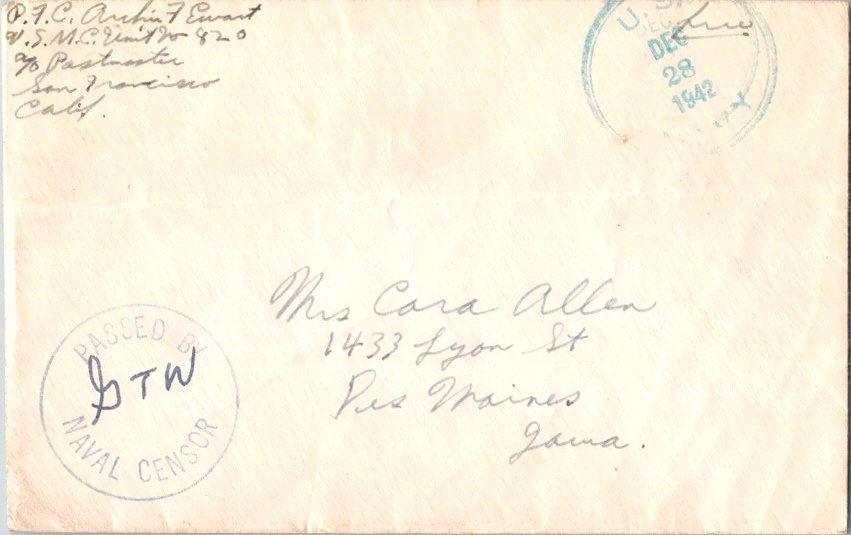 P.F.C. Archie F Ewart
U.S.M.C. Unit No 820
c/o Postmaster
San Francisco
Calif.
Free
U.S.
DEC
28
1942
Mrs Cora Allen
1433 Lyon St
Des Moines
Iowa.
PASSED BY
GTW
NAVAL CENSOR